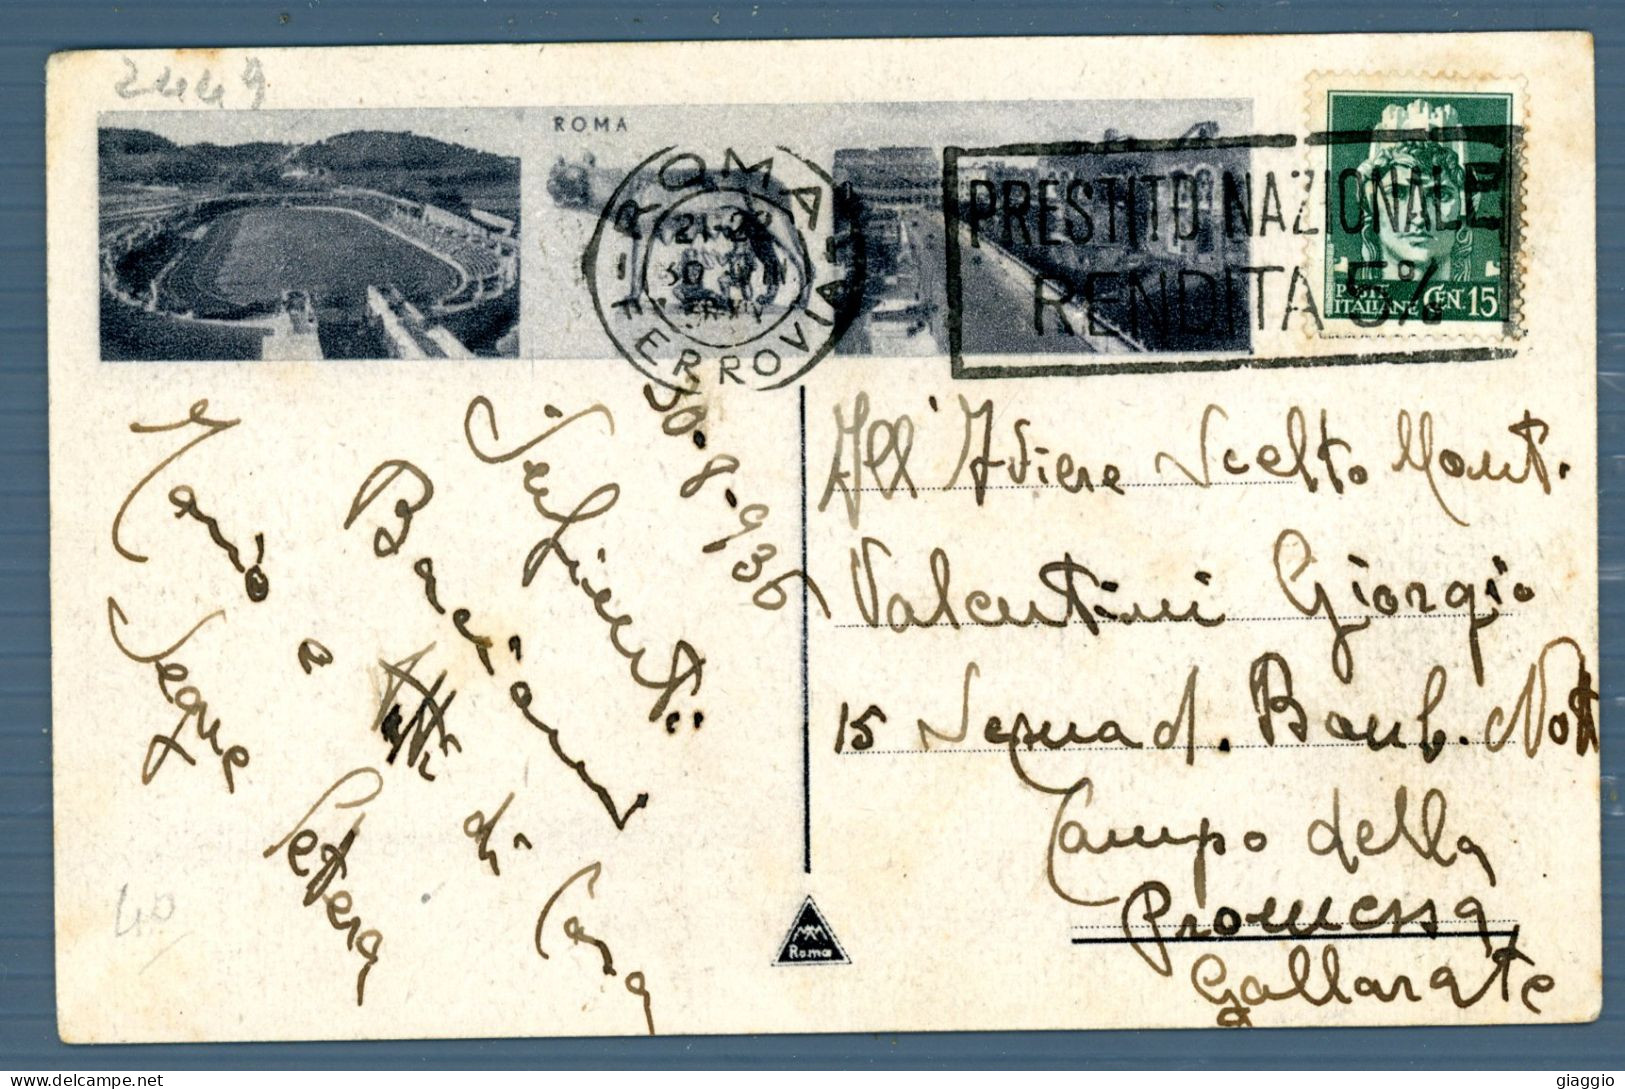 2449
ROMA
ROMA
FERROVIA
21-22
30 VIII
PRESTITO NAZIONALE
RENDITA 5%
POSTE
ITALIANE CEN 15
30-8-936
Infiniti
Bacioni
Mario
a tutti di Casa
Segue lettera
All' Aviere Scelto Mont.
Valentini Giorgio
15 Stormo d. Bomb. Nott
Campo della
Promessa
Gallarate
40
Roma
giaggio
delcampe.net